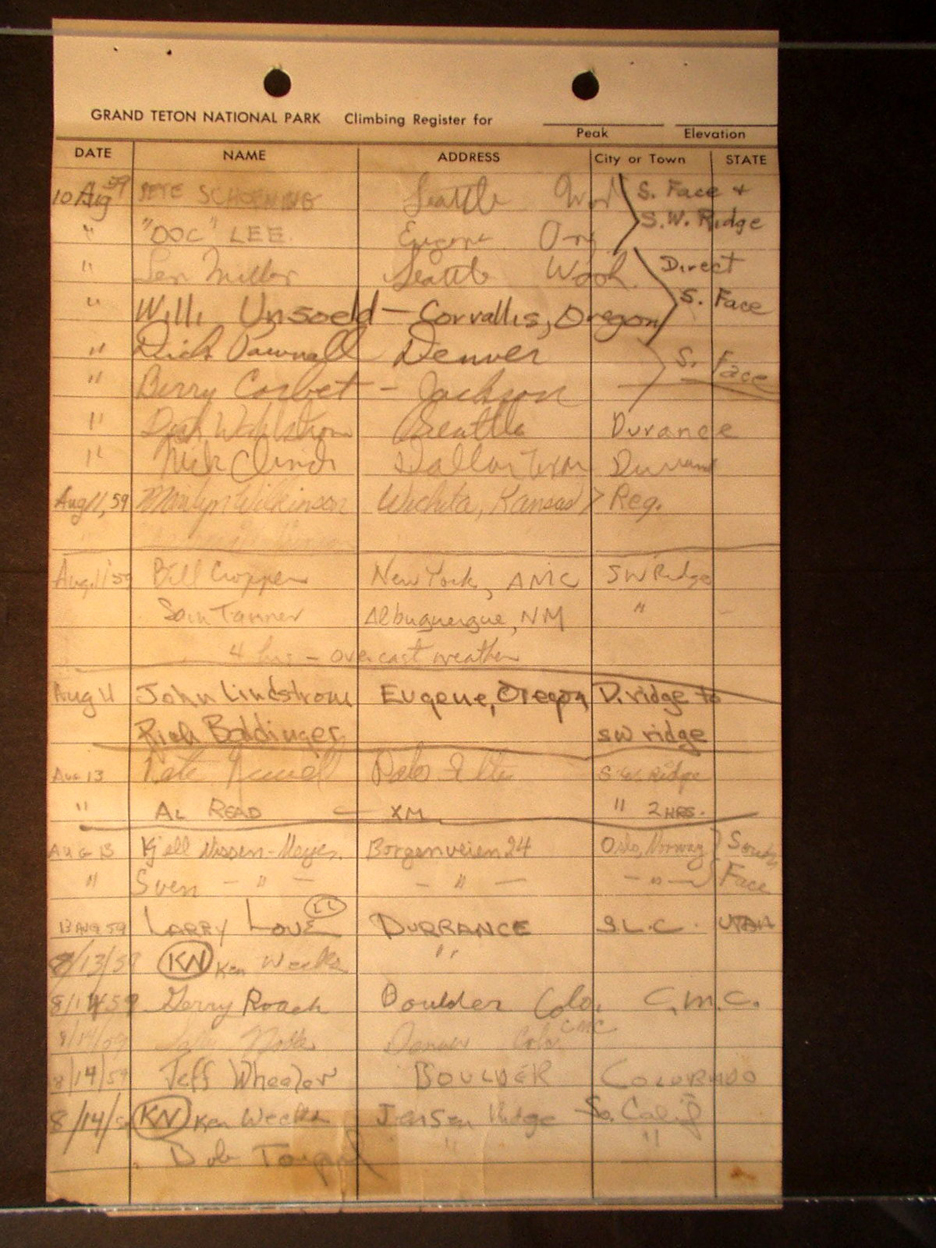 GRAND TETON NATIONAL PARK Climbing Register for
Peak Elevation
DATE NAME ADDRESS City or Town STATE
10 Aug 59 PETE SCHOENING Seattle S. Face +
" "DOC" LEE. Eugene Ore S.W. Ridge
" Len Miller Seattle Wash. Direct
" Willi Unsoeld - Corvallis, Oregon S. Face
" Dick Pownall Denver S. Face
" Barry Corbet - Jackson
" Dick Wahlstrom Seattle Durance
" Nick Clinch Dallas Texas
Aug 11, 59 Marilyn Wilkinson Wichita, Kansas > Reg.
Aug. 11 '59 Bill Cropper New York, AMC SW Ridge
Tanner Albuquerque, NM "
4 hrs - overcast weather
Aug 11 John Lindstrom Eugene, Oregon D. ridge to
Rich Boddinger sw ridge
Aug 13 Palo Alto S.W. Ridge
" AL READ - XM " 2 HRS.
AUG 13 Kjell Nissen-Meyer. Borgenveien 24 Oslo, Norway } South
" Sven - " - - " - - " - Face
13 AUG 59 LARRY LOVE LL DURRANCE S.L.C. UTAH
8/13/59 KW Ken Weeks "
8/14/59 Gerry Roach Boulder Colo. C.M.C.
8/14/59 Denver Colo. CMC
8/14/59 Jeff Wheeler BOULDER COLORADO
8/14/59 KW Ken Weeks Jensen Ridge So. Calif
Bob " "